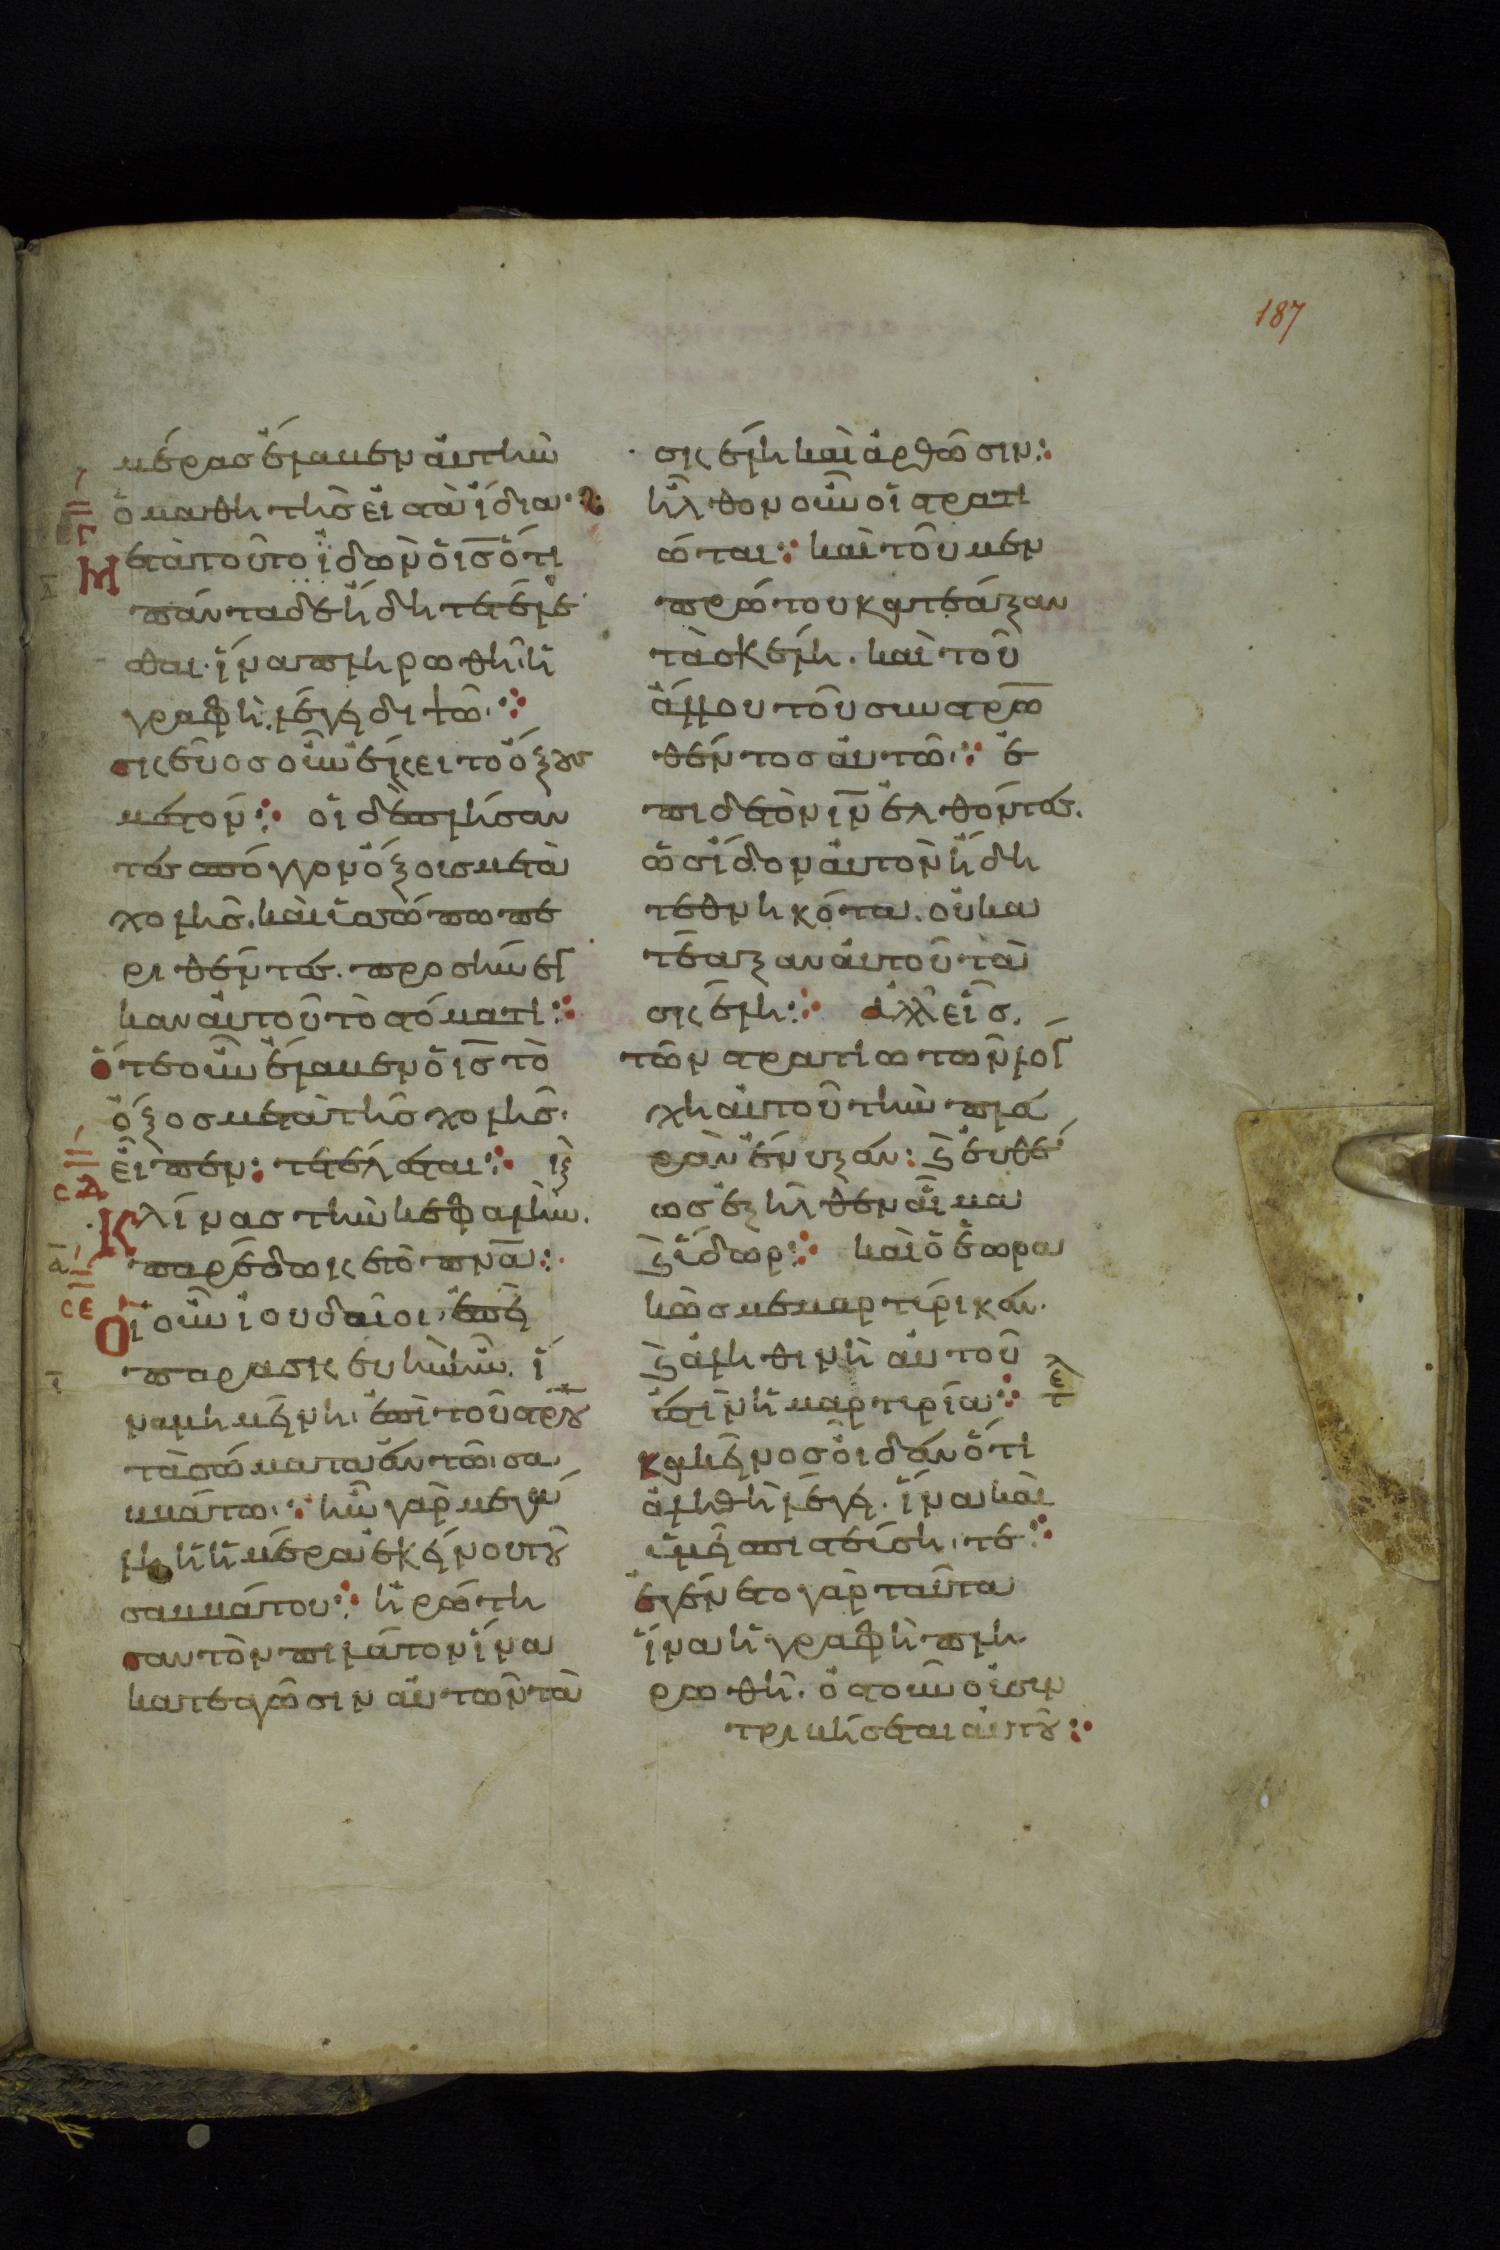 μέρας ἔλαβεν αὐτὴν
ὁ μαθητὴς εἰς τὰ ἴδια·
Μετὰ τοῦτο ἰδὼν ὁ ις ὅτι
πάντα δὲ ἤδη τετέλε
σθαι· ἵνα πληρωθῆ ἡ
γραφὴ. λέγει διψῶ·
σκεῦος οὖν ἔκειτο ὄξους
μεστόν· οἱ δὲ πλήσαν
τες σπόγγον ὄξοις μετὰ
χολῆς. καὶ ὑσώπω πε
ριθέντες. προσήνεγ
καν αὐτοῦ τὸ στόματι·
ὅτε οὖν ἔλαβεν ὁ ις τὸ
ὄξος μετὰ τῆς χολῆς·
εἶπεν· τετέλεσται·
Κλίνας τὴν κεφαλὴν.
παρέδωκε τὸ πνα·
Οἱ οὖν ἰουδαῖοι· ἐπεὶ
παρασκευὴ ἦν. ἵ
να μὴ μείνη ἐπὶ τοῦ στρου
τὰ σώματα ἐν τῶ σα
ββάτω· ἦν γὰρ μεγά
λη ἡ ἡμέρα ἐκείνου τοῦ
σαββάτου· ἠρώτη
σαν τὸν πιλάτον ἵνα
κατεαγῶσιν αὐτῶν τὰ
σκέλη καὶ ἀρθῶσιν·
ἦλθον οὖν οἱ στρατι
ώται· καὶ τοῦ μὲν
πρώτου κατεάξαν
τὰ σκέλη. καὶ τοῦ
ἄλλου τοῦ συνστρω
θέντος αὐτῶ· ἐ
πι δὲ τὸν ιν ἐλθόντες.
ὡς ἴδον αὐτὸν ἤδη
τεθνηκότα. οὐ κα
τέαξαν αὐτοῦ τὰ
σκέλη· ἀλλ εἷς
τῶν στρατιωτῶν λόγ
χη αὐτοῦ τὴν πλευ
ρὰν ἔνυξεν· καὶ εὐθέ
ως ἐξῆλθεν αἷμα
καὶ ἵδωρ· καὶ ὁ ἑωρα
κὼς μεμαρτίρικεν.
καὶ ἀληθινὴ αὐτοῦ
ἐστὶν ἡ μαρτιρία·
κακεῖνος οἶδεν ὅτι
ἀληθὴ λέγει. ἵνα καὶ
ὑμεῖς πιστεύσητε·
ἐγένετο γὰρ ταῦτα
ἵνα ἡ γραφὴ πλη
ρωθῆ. ὀστοῦν οὐ συν
τριβήσεται αὐτοῦ·
187